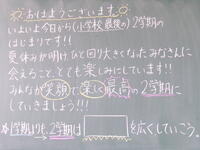 おはようございます。
いよいよ今日から(小学校最後の)2学期の
はじまりです!!
夏休みが明け、ひと回り大きくなったみなさんに
会えること、とても楽しみにしています!!
みんなが笑顔で楽しく最高の2学期に
していきましょう!!!
☆1学期よりも、2学期は を広くしていこう。